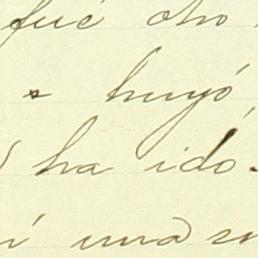 fué otro
huyó,
ha ido.
una